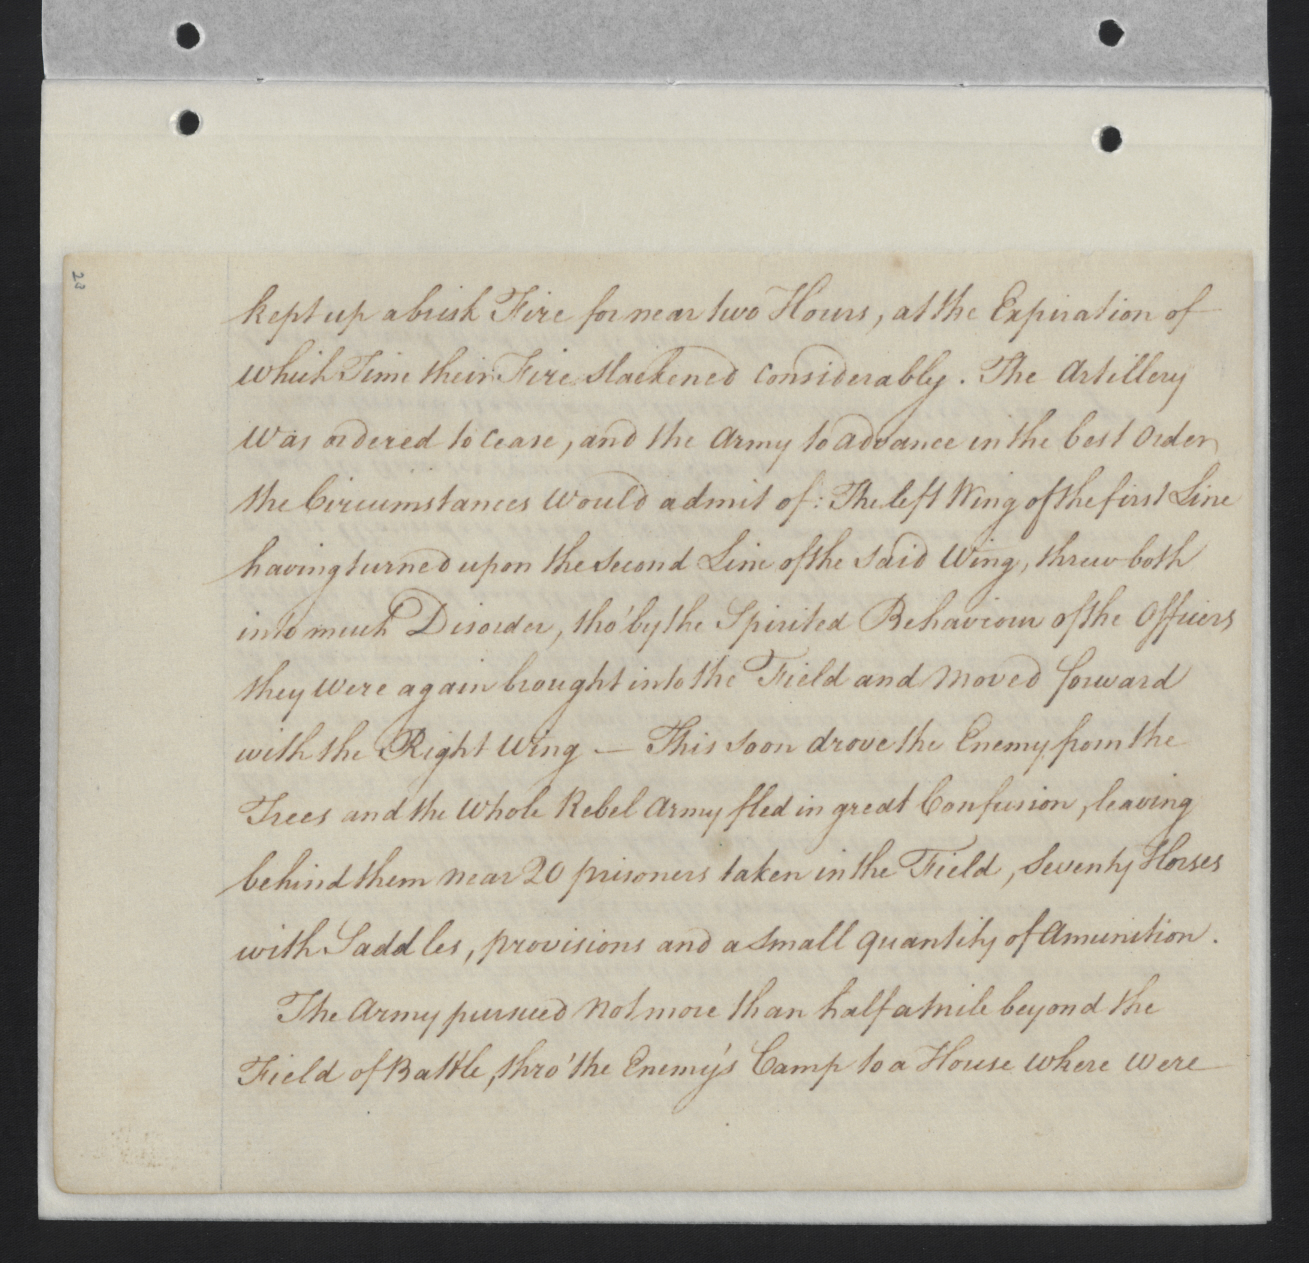 20
kept up a brisk Fire for near two Hours, at the Expiration of
which Time their Fire slackened considerably. The Artillery
was ordered to cease, and the Army to advance in the best Order
the Circumstances would admit of: The left Wing of the first Line
having turned upon the second Line of the said Wing, threw both
into much Disorder, tho' by the Spirited Behaviour of the Officers
they were again brought into the Field and moved forward
with the Right Wing — This soon drove the Enemy from the
Trees and the whole Rebel Army fled in great Confusion, leaving
behind them near 20 prisoners taken in the Field, Seventy Horses
with Saddles, provisions and a small quantity of Amunition.
The Army pursued not more than half a Mile beyond the
Field of Battle, thro' the Enemy's Camp to a House where were